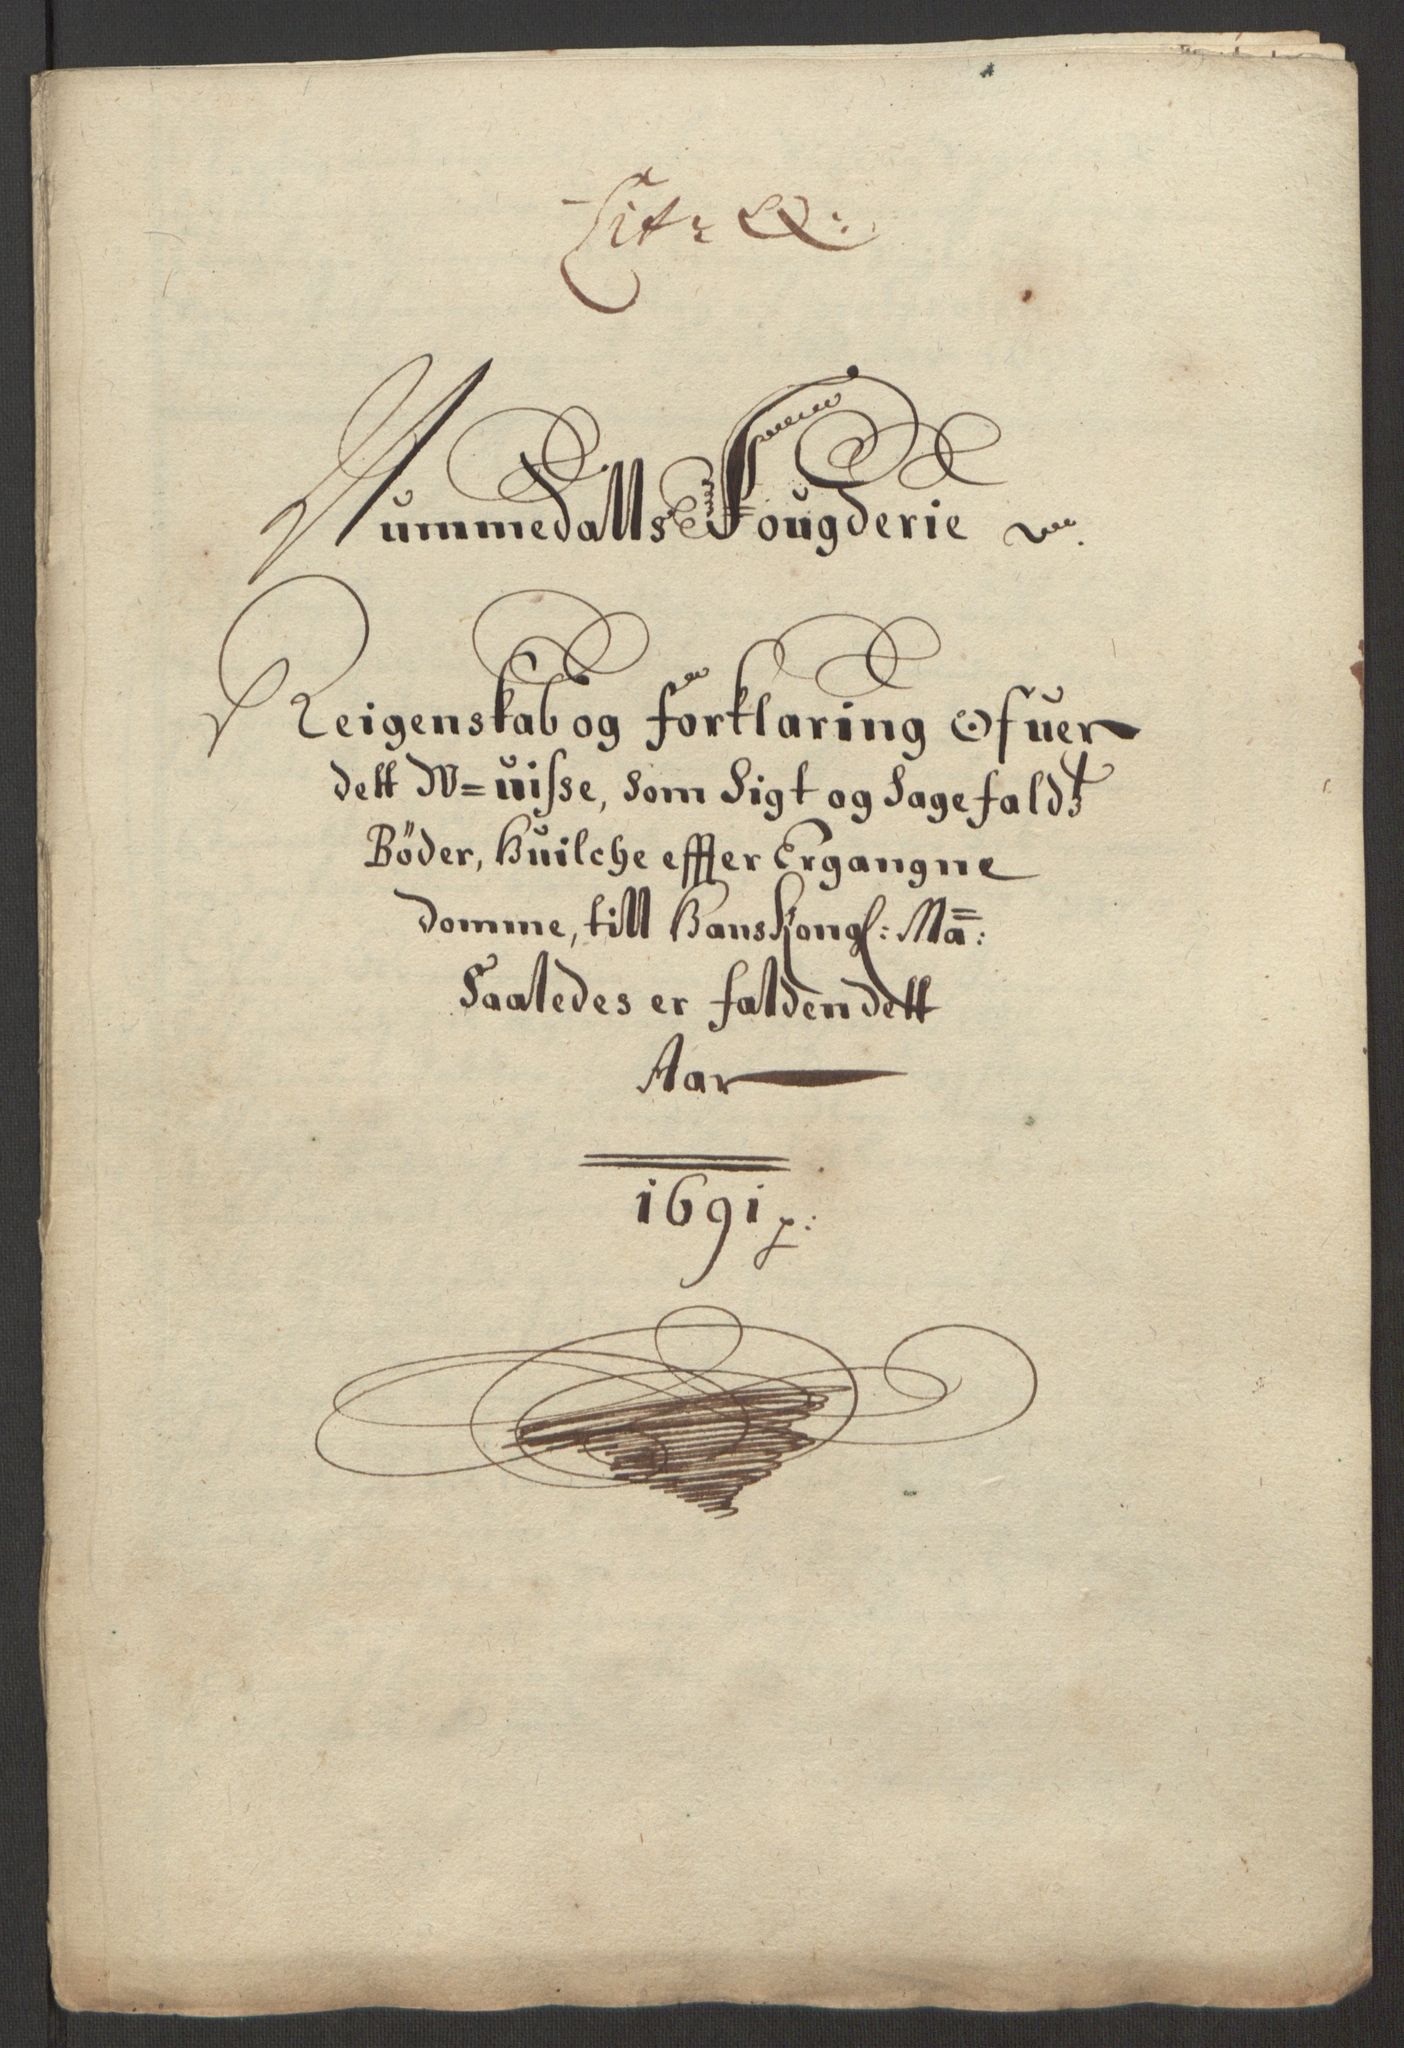 Lit: Q:
Nummedalls Fougderie
Reigenskab og forklaring Ofuer
dett W=uisse, som Sigt og Sagefalds
Böder, huilche effter Ergangne
domme, till Hans Kongl: Ma:
Saaledes er falden dett
Aar
1691